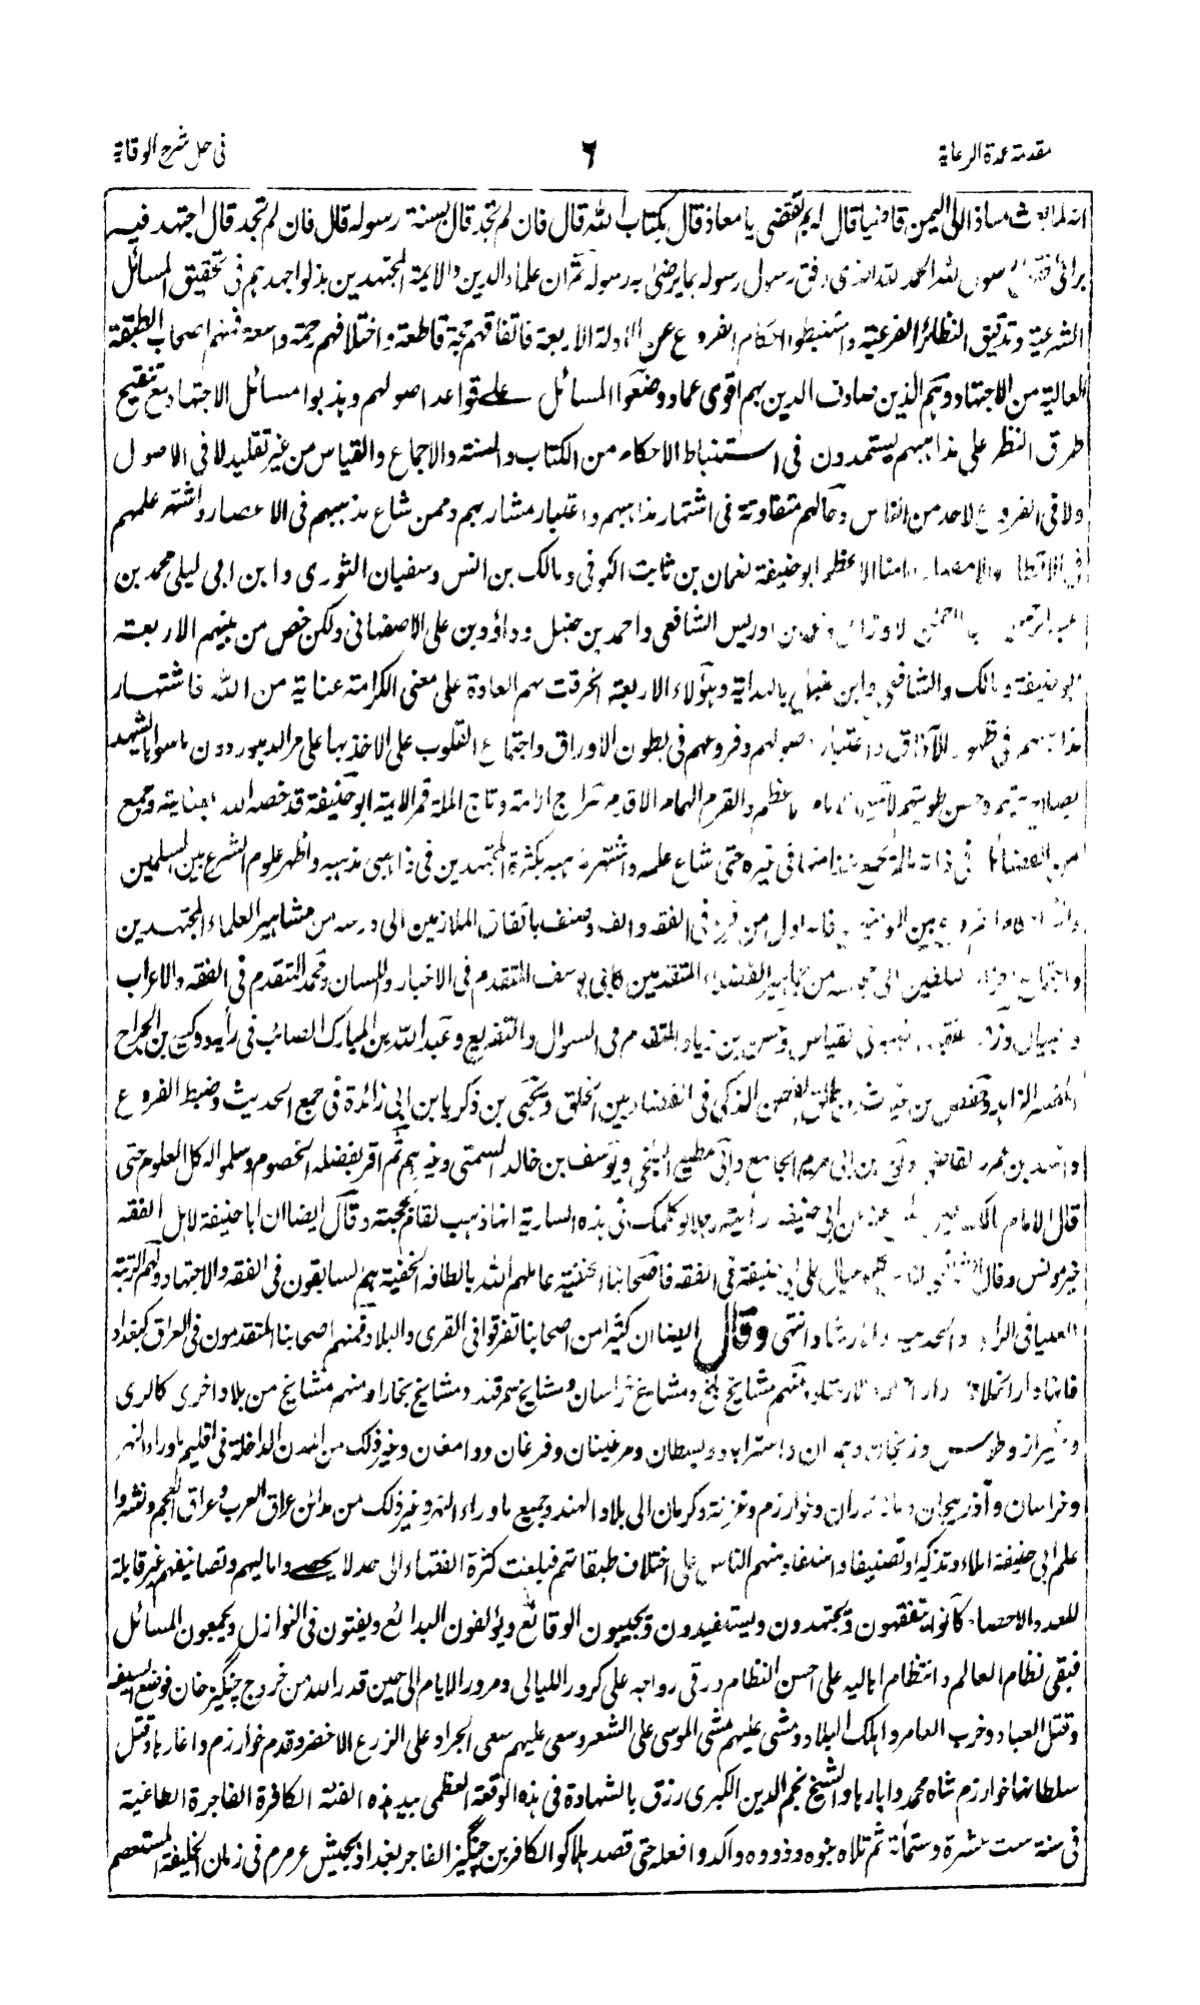 مقدمة عمدة الرعاية ٦ في حل شرح الوقاية
انه لما بعث معاذا الى اليمن قاضيا قال له بم تقضى يا معاذ قال بكتاب الله قال فان لم تجد قال بسنة رسوله قال فان لم تجد قال اجتهد فيه
برائى فقال رسول الله الحمد لله الذى وفق رسول رسوله بما يرضى به رسوله ثم ان علماء الدين والائمة المجتهدين بذلوا جهدهم فى تحقيق المسائل
الشرعية وتدقيق النظائر الفرعية واستنبطوا احكام الفروع عن الادلة الاربعة فاتفاقهم حجة قاطعة واختلافهم رحمة واسعة فمنهم اصحاب الطبقة
العالية من الاجتهاد وهم الذين صادف الدين بهم اقوى عماد وضعوا المسائل على قواعد اصولهم وهذبوا مسائل الاجتهاد مع تنقيح
طرق النظر على مذاهبهم يستمدون فى استنباط الاحكام من الكتاب والسنة والاجماع والقياس من غير تقليد لا فى الاصول
ولا فى الفروع لاحد من الناس وحالهم متفاوتة فى اشتهار مذاهبهم واعتبار مشاربهم وممن شاع مذهبهم فى الاعصار واشتهر علمهم
فى الاقطار والامصار امامنا الاعظم ابو حنيفة نعمان بن ثابت الكوفى ومالك بن انس وسفيان الثورى وابن ابى ليلى محمد بن
عبد الرحمن الاوزاعى ادريس الشافعى واحمد بن حنبل وداؤد بن على الاصفهانى ولكن خص من بينهم الاربعة
ابو حنيفة ومالك والشافعى وابن حنبل بالهداية وهؤلاء الاربعة انخرقت بهم العادة على معنى الكرامة عناية من الله فاشتهار
مذاهبهم فى ظهور الآفاق واعتبار اصولهم وفروعهم فى بطون الاوراق واجتماع القلوب على الاخذ بها على مر الدهور دون ما سواها يشهد
بصلاح نيتهم وحسن طويتهم الاعظم والقرم الهمام الاقدم سراج الامة وتاج الملة قمر الائمة ابو حنيفة قد خصه الله بعناية وجمع
من الفضائل فى ذاته فى غيره حتى شاع علمه واشتهر مذهبه بكثرة المجتهدين فى ذاهبى مذهبه واظهر علوم الشرع بين المسلمين
بين المؤمنين فانه اول من فرع فى الفقه والف وصنف باتفاق الملازمين الى درسه من مشاهير العلماء المجتهدين
واجتماع الى مجلسه من جماهير الفضلاء المتقدمين كابى يوسف المتقدم فى الاخبار واللسان ومحمد المتقدم فى الفقه والاعراب
والبيان وزفر القياس وحسن بن زياد المتقدم فى السوال والتفريع وعبد الله بن المبارك الصائب فى رأيه ووكيع بن الجراح
المفسر الزاهد وحفص بن غياث الذكى فى القضاء بين الخلق ويحيى بن زكريا بن ابى زائدة فى جمع الحديث وضبط الفروع
واسد بن عمرو القاضى ونوح بن ابى مريم الجامع وابى مطيع البلخى ويوسف بن خالد السمتى وغيرهم ثم اقر بفضله الخصوم وسلموا له كل العلوم حتى
قال الامام مالك عن ابى حنيفة رأيت رجلا لو كلمك فى هذه السارية انها ذهب لقام بحجته وقال ايضا ان ابا حنيفة لاهل الفقه
خير مونس وقال الشافعى عيال على ابى حنيفة فى الفقه فاصحابنا الحنفية عاملهم الله بالطافه الخفية هم السابقون فى الفقه والاجتهاد ولهم الرتبة
العليا فى الرأى والحديث والارشاد انتهى وقال ايضا ان كثيرا من اصحابنا تفرقوا فى القرى والبلاد فمنهم اصحابنا المتقدمون فى العراق كبغداد
فانها دار الخلافة ودار ومنهم مشايخ بلخ ومشايخ خراسان ومشايخ سمرقند ومشايخ بخارا ومنهم مشايخ من بلاد اخرى كالرى
وشيراز وطوس وزنجان وهمدان واستراباد وبسطان ومرغينان وفرغان ودامغان وغير ذلك من المدن الداخلة فى اقليم ماوراء النهر
وخراسان وآذربيجان ومازندران وخوارزم وغزنة وكرمان الى بلاد الهند وجميع ما وراء النهر وغير ذلك من مدائن عراق العرب وعراق العجم ونشروا
علم ابى حنيفة املاء وتذكيرا وتصنيفا واستفاد منهم الناس على اختلاف طبقاتهم فبلغت كثرة الفقهاء الى حد لا يحصى واماليهم وتصانيفهم غير قابلة
للعد والاحصاء كانوا يتفقهون ويجتهدون ويستفيدون ويجيبون الوقائع ويؤلفون البدائع ويفتون فى النوازل ويجمعون المسائل
فبقى نظام العالم وانتظام اهاليه على احسن النظام ورقى رواجه على كرور الليالى ومرور الايام الى حين قدر الله من خروج جنگيز خان فوضع السيف
وقتل العباد وخرب العامر واهلك البلاد ومشى عليهم مشى الموسى على الشعر وسعى عليهم سعى الجراد على الزرع الاخضر وقدم خوارزم واغار بها وقتل
سلطانها خوارزم شاه محمد وابارها والشيخ نجم الدين الكبرى رزق بالشهادة فى هذه الوقعة العظمى بيد هذه الفئة الكافرة الفاجرة الطاغية
فى سنة ست عشرة وستمأة ثم تلاه بنوه وذووه واكدوا فعله حتى قصد هلاكو الكافر بن جنگيز الفاجر بغداد بجيش عرمرم فى زمان الخليفة المستعصم